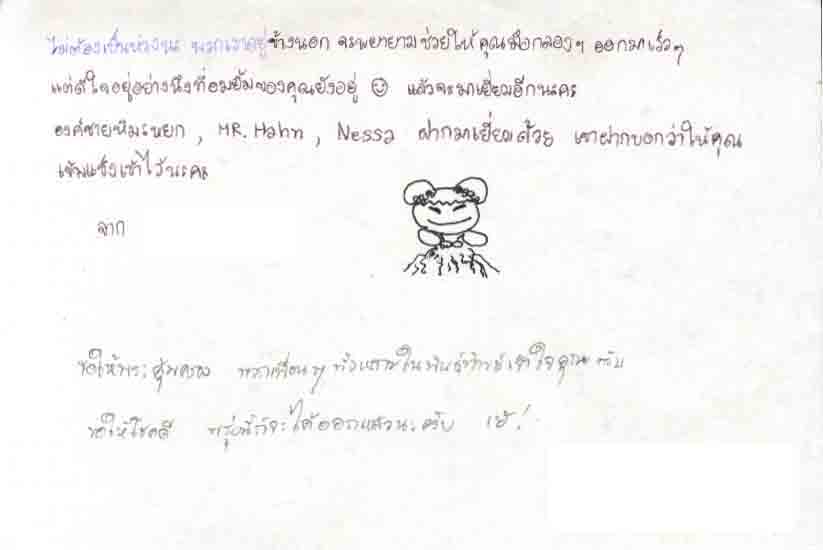 ไม่ต้องเป็นห่วงนะ พวกเราอยู่ข้างนอก จะพยายามช่วยให้คุณมือกลองฯ ออกมาเร็วๆ
แต่ดีใจอยู่อย่างนึงที่อมยิ้มของคุณยังอยู่ ☺ แล้วจะมาเยี่ยมอีกนะคะ
องค์ชายหิมะหยก , MR. Hahn , Nessa ฝากมาเยี่ยมด้วย เขาฝากบอกว่าให้คุณ
เข้มแข็งเข้าไว้นะคะ
จาก
ขอให้พระคุ้มครอง พวกเพื่อนๆ ทั้งหลายในพันธุ์ทิพย์เข้าใจคุณครับ
ขอให้โชคดี พรุ่งนี้ก็จะได้ออกแล้วนะครับ เย้!